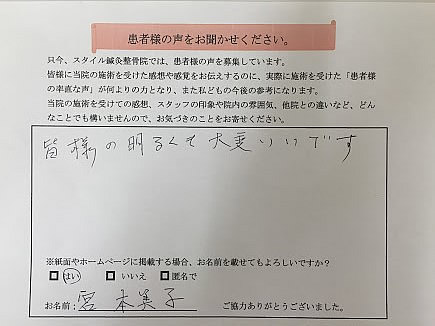 患者様の声をお聞かせください。
只今、スタイル鍼灸整骨院では、患者様の声を募集しています。
皆様に当院の施術を受けた感想や感覚をお伝えするのに、実際に施術を受けた「患者様
の率直な声」が何よりの力となり、また私どもの今後の参考になります。
当院の施術を受けての感想、スタッフの印象や院内の雰囲気、他院との違いなど、どん
なことでも構いませんので、お気づきのことをお寄せください。
皆様の明るくて大変いいです
※紙面やホームページに掲載する場合、お名前を載せてもよろしいですか?
□ はい □ いいえ □ 匿名で
お名前: 宮本美子 ご協力ありがとうございました。